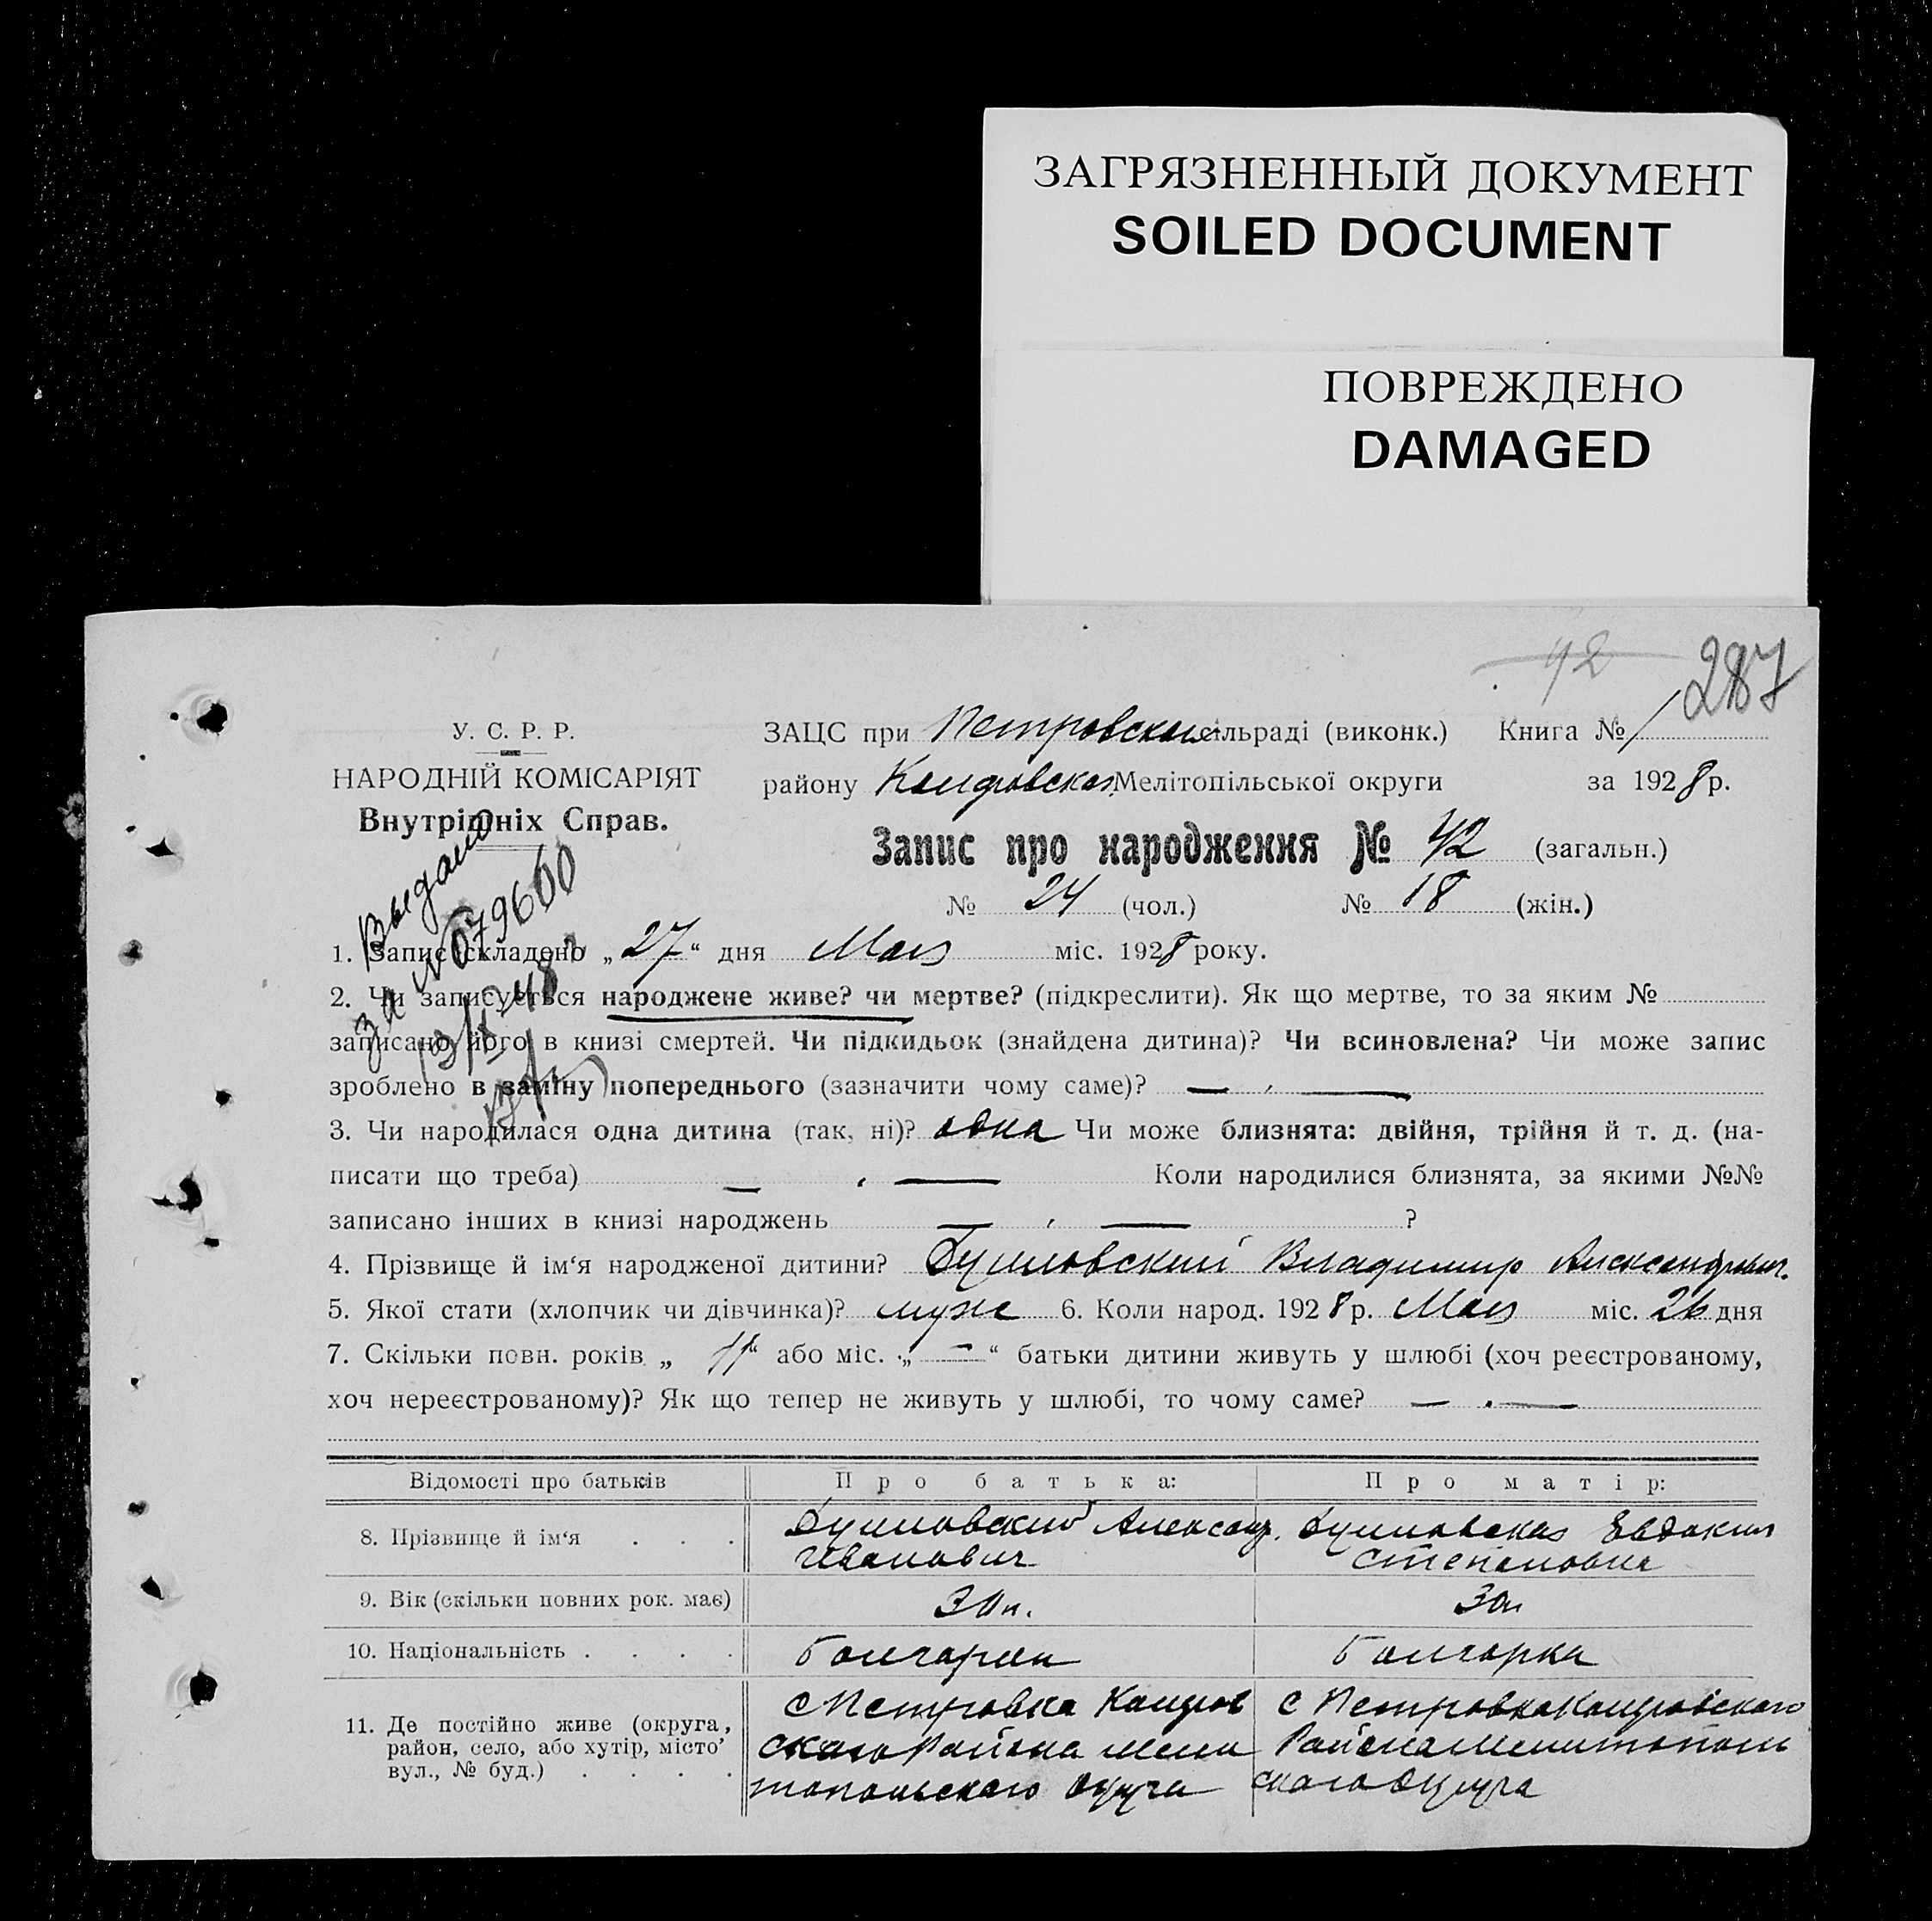 ЗАГРЯЗНЕННЫЙ ДОКУМЕНТ
SOILED DOCUMENT
ПОВРЕЖДЕНО
DAMAGED
42 287
У. С. Р. Р.
НАРОДНІЙ КОМІСАРІЯТ
Внутрішніх Справ.
ЗАЦС при Петровском сільраді (виконк.) Книга № 1
району Мелітопільської округи за 1928 р.
Запис про народження № 42 (загальн.)
№ 24 (чол.) № 18 (жін.)
Выдано
за № 079660
1. Запис складено „27“ дня Мая міс. 1928 року.
2. Чи записується народжене живе? чи мертве? (підкреслити). Як що мертве, то за яким №
записано його в книзі смертей. Чи підкидьок (знайдена дитина)? Чи всиновлена? Чи може запис
зроблено в заміну попереднього (зазначити чому саме)? — —
3. Чи народилася одна дитина (так, ні)? одна Чи може близнята: двійня, трійня й т. д. (на-
писати що треба) — — Коли народилися близнята, за якими №№
записано інших в книзі народжень — — ?
4. Прізвище й ім‘я народженої дитини? Владимир Александрович.
5. Якої стати (хлопчик чи дівчинка)? муж 6. Коли народ. 1928 р. Мая міс. 26 дня
7. Скільки повн. років „ 11“ або міс. „ — “ батьки дитини живуть у шлюбі (хоч реєстрованому,
хоч нереєстрованому)? Як що тепер не живуть у шлюбі, то чому саме? — —
Відомості про батьків Про батька: Про матір:
8. Прізвище й ім‘я . . . Александ. Евдокия
Иванович Степановна
9. Вік (скільки повних рок. має) 30 л. 30 л
10. Національність . . . . болгарин болгарка
11. Де постійно живе (округа, район, село, або хутір, місто’ вул., № буд.) . . . .
с Петровка
ского Района Мели
топольского округа
с Петровка
Района Мелитополь
ского округа